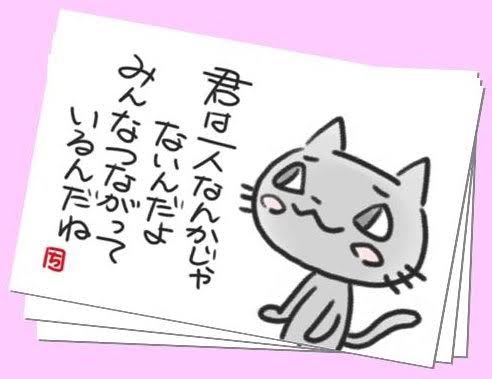 君は一人なんかじゃ
ないんだよ
みんなつながって
いるんだね
ち